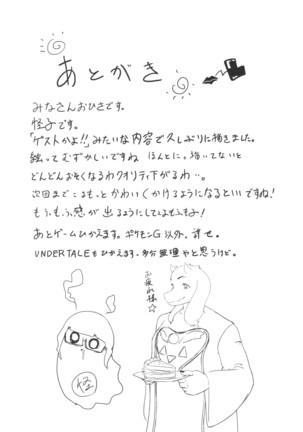 あとがき
みなさんおひさです。
怪子です。
「ゲストかよ!!」みたいな内容で久しぶりに描きました。
絵ってむずかしいですね ほんとに。描いてないと
どんどんおそくなるわクオリティ下がるわ…。
次回までにもっとかわいくかけるようになるといいですね!
もふもふ感が出るようにしていよもふもふ!
あとゲームひかえます。ポケモンG以外。許せ。
UNDERTALEもひかえます。多分無理やと思うけど。
お疲れ様☆
怪